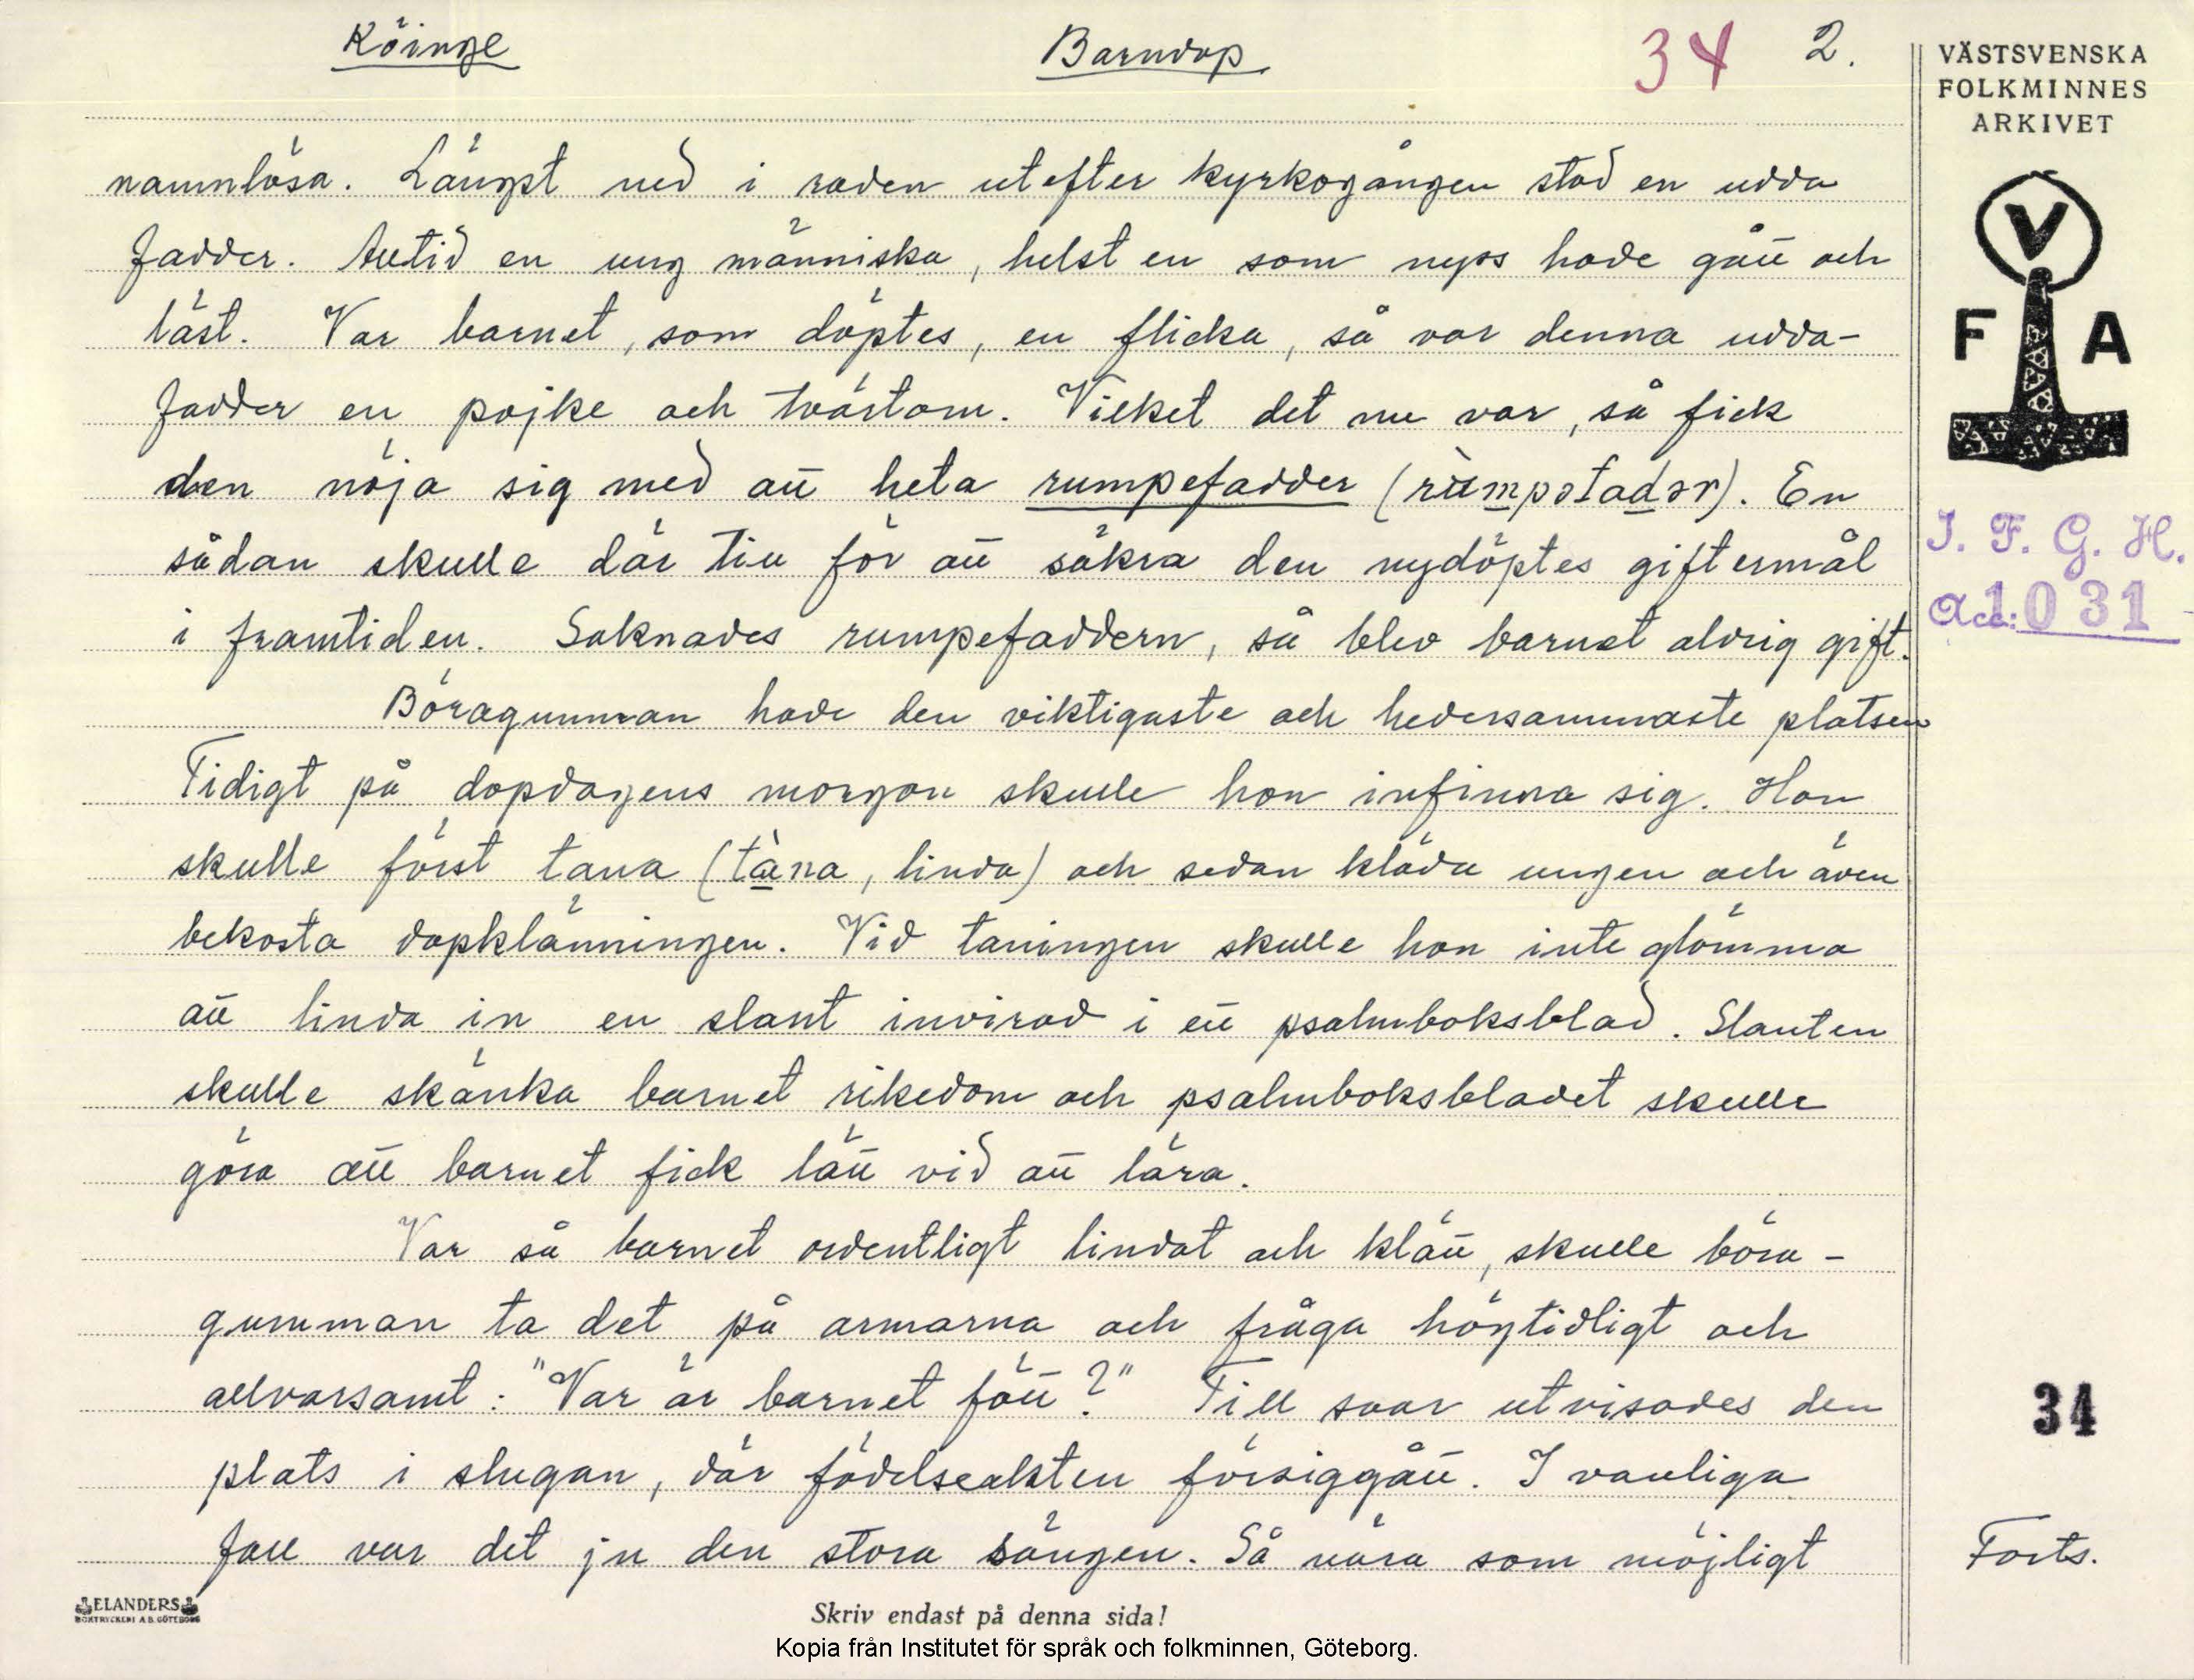 Köinge
Barndop
34 2.
VÄSTSVENSKA
FOLKMINNES
ARKIVET
namnlösa. Längst ned i raden utefter kyrkogången stod en udda
fadder. Alltid en ung människa, helst en som nyss hade gått och
läst. Var barnet, som döptes, en flicka, så var denna udda-
fadder en pojke och tvärtom. Vilket det nu var, så fick
den nöja sig med att heta rumpefadder (rùmpəfadər). En
sådan skulle där till för att säkra den nydöptes giftermål
i framtiden. Saknades rumpefaddern, så blev barnet aldrig gift.
Böragumman hade den viktigaste och hedersammaste platsen
Tidigt på dopdagens morgon skulle hon infinna sig. Hon
skulle först tana (tàna, linda) och sedan kläda ungen och även
bekosta dopklänningen. Vid taningen skulle hon inte glömma
att linda in en slant invirad i ett psalmboksblad. Slanten
skulle skänka barnet rikedom och psalmboksbladet skulle
göra att barnet fick lätt vid att lära.
Var så barnet ordentligt lindat och klätt, skulle böra-
gumman ta det på armarna och fråga högtidligt och
allvarsamt: "Var är barnet fött?" Till svar utvisades den
plats i stugan, där födelseakten försiggått. I vanliga
fall var det ju den stora sängen. Så nära som möjligt
V
F A
I. F. G. H.
Acc: 1031
34
Forts.
ELANDERS
BOKTRYCKERI A.B. GÖTEBORG
Skriv endast på denna sida!
Kopia från Institutet för språk och folkminnen, Göteborg.